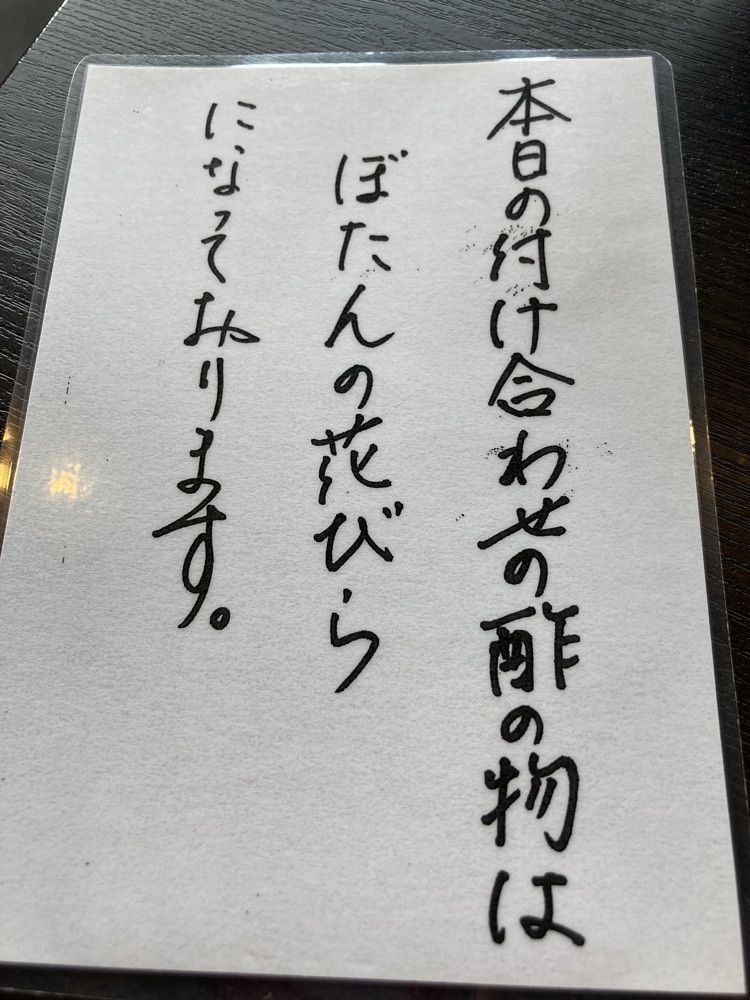 本日の付け合わせの酢の物は
ぼたんの花びら
になっております。